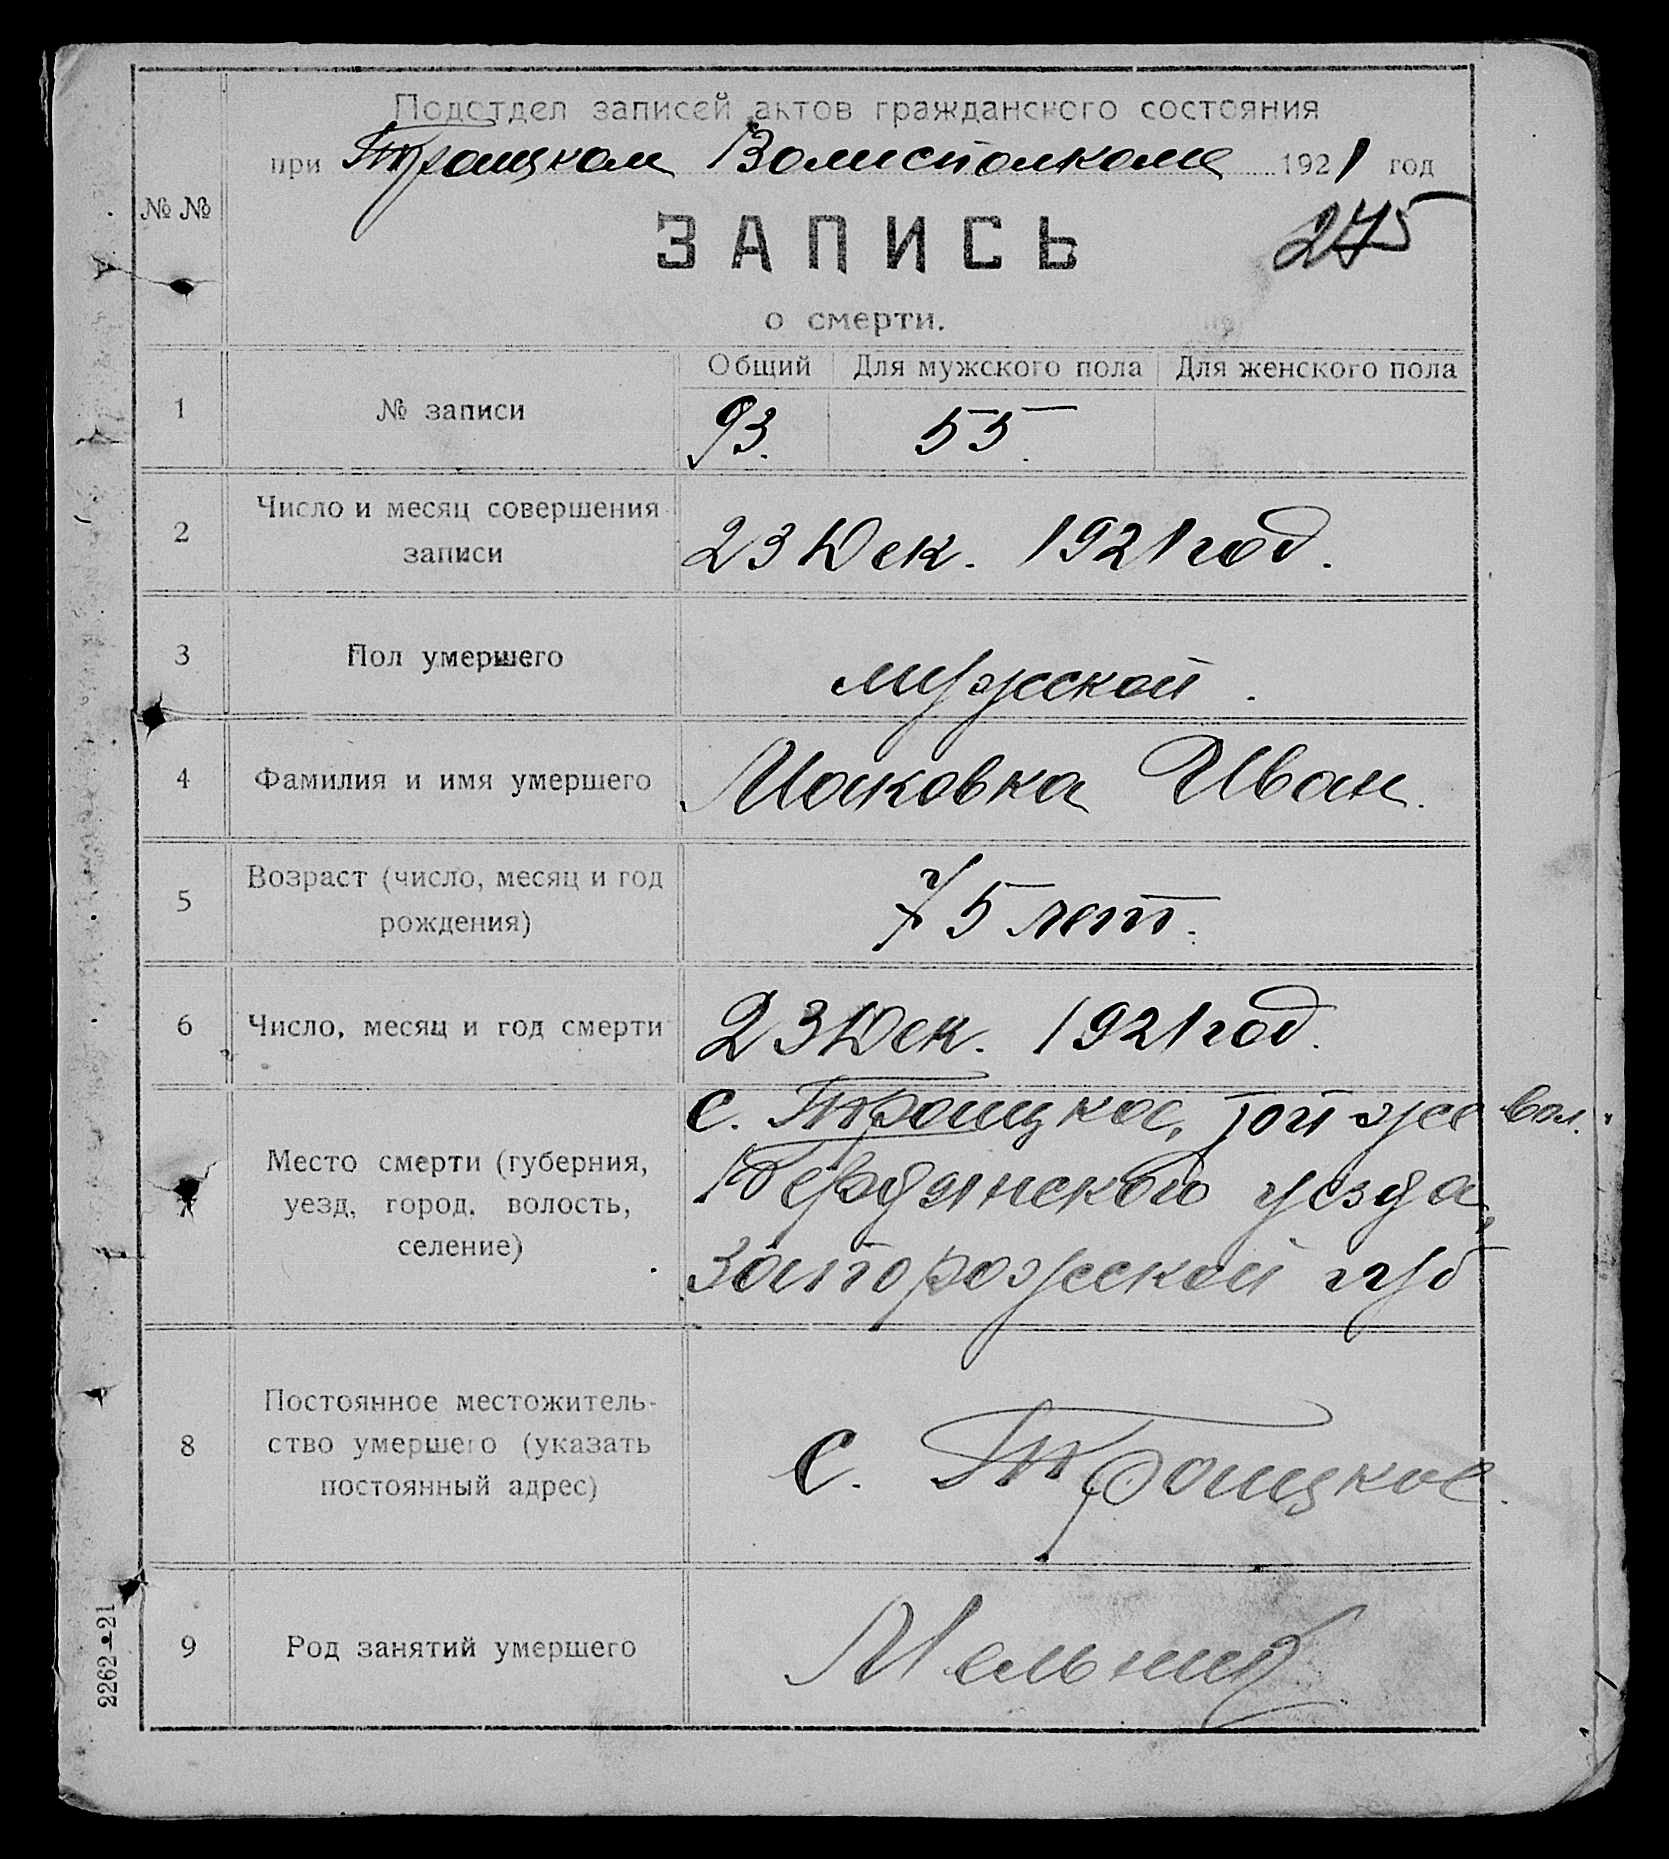 Подотдел записей актов гражданского состояния
при Троицком Волисполкоме 1921 год
№ №
275
ЗАПИСЬ
о смерти.
Общий Для мужского пола Для женского пола
1 № записи 93. 55.
2 Число и месяц совершения
записи
23 Дек. 1921 год.
3 Пол умершего мужской.
4 Фамилия и имя умершего Маковка Иван.
5 Возраст (число, месяц и год
рождения)
75 лет.
6 Число, месяц и год смерти 23 Дек. 1921 год.
Место смерти (губерния,
уезд, город, волость,
селение)
с. Троицкое, той же вол.
Бердянского уезда,
Запорожской губ
8 Постоянное местожитель-
ство умершего (указать
постоянный адрес)
с. Троицкое.
9 Род занятий умершего Мельник
2262—21